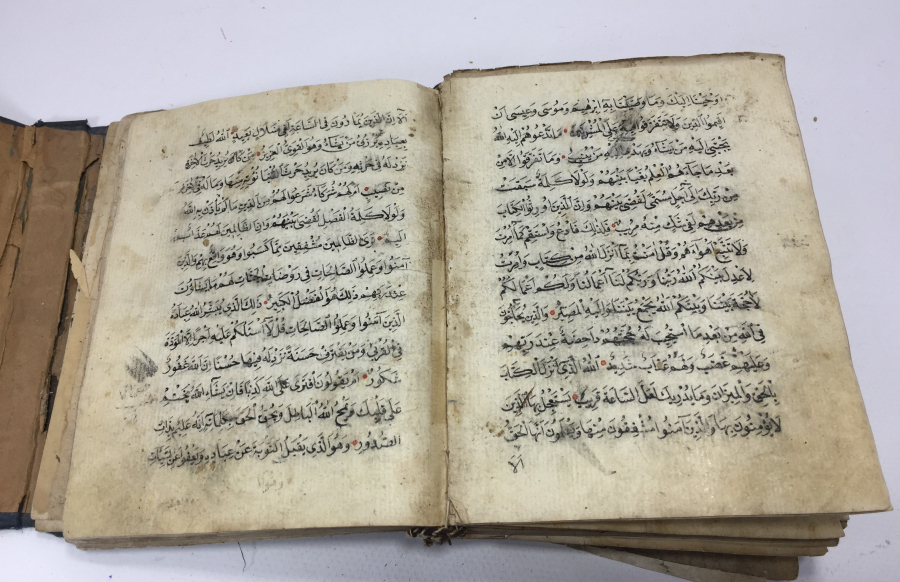 اَوْحَيْنَا اِلَيْكَ وَمَا وَصَّيْنَا بِهٖ اِبْرٰهِيمَ وَمُوسٰى وَعِيسٰى اَنْ
اَقِيمُوا الدِّينَ وَلَا تَتَفَرَّقُوا فِيهِ كَبُرَ عَلَى الْمُشْرِكِينَ مَا تَدْعُوهُمْ اِلَيْهِ اَللّٰهُ
يَجْتَبِي اِلَيْهِ مَنْ يَشَاءُ وَيَهْدِي اِلَيْهِ مَنْ يُنِيبُ وَمَا تَفَرَّقُوا اِلَّا مِنْ
بَعْدِ مَا جَاءَهُمُ الْعِلْمُ بَغْيًا بَيْنَهُمْ وَلَوْلَا كَلِمَةٌ سَبَقَتْ
مِنْ رَبِّكَ اِلٰى اَجَلٍ مُسَمًّى لَقُضِيَ بَيْنَهُمْ وَاِنَّ الَّذِينَ اُورِثُوا الْكِتَابَ
مِنْ بَعْدِهِمْ لَفِي شَكٍّ مِنْهُ مُرِيبٍ فَلِذٰلِكَ فَادْعُ وَاسْتَقِمْ كَمَا اُمِرْتَ
وَلَا تَتَّبِعْ اَهْوَاءَهُمْ وَقُلْ اٰمَنْتُ بِمَا اَنْزَلَ اللّٰهُ مِنْ كِتَابٍ وَاُمِرْتُ
لِاَعْدِلَ بَيْنَكُمُ اللّٰهُ رَبُّنَا وَرَبُّكُمْ لَنَا اَعْمَالُنَا وَلَكُمْ اَعْمَالُكُمْ
لَا حُجَّةَ بَيْنَنَا وَبَيْنَكُمُ اللّٰهُ يَجْمَعُ بَيْنَنَا وَاِلَيْهِ الْمَصِيرُ وَالَّذِينَ يُحَاجُّونَ
فِي اللّٰهِ مِنْ بَعْدِ مَا اسْتُجِيبَ لَهُ حُجَّتُهُمْ دَاحِضَةٌ عِنْدَ رَبِّهِمْ
وَعَلَيْهِمْ غَضَبٌ وَلَهُمْ عَذَابٌ شَدِيدٌ اَللّٰهُ الَّذِي اَنْزَلَ الْكِتَابَ
بِالْحَقِّ وَالْمِيزَانَ وَمَا يُدْرِيكَ لَعَلَّ السَّاعَةَ قَرِيبٌ يَسْتَعْجِلُ بِهَا الَّذِينَ
لَا يُؤْمِنُونَ بِهَا وَالَّذِينَ اٰمَنُوا مُشْفِقُونَ مِنْهَا وَيَعْلَمُونَ اَنَّهَا الْحَقُّ
اَلَا
اَلَا اِنَّ الَّذِينَ يُمَارُونَ فِي السَّاعَةِ لَفِي ضَلَالٍ بَعِيدٍ اَللّٰهُ لَطِيفٌ
بِعِبَادِهِ يَرْزُقُ مَنْ يَشَاءُ وَهُوَ الْقَوِيُّ الْعَزِيزُ مَنْ كَانَ يُرِيدُ حَرْثَ الْاٰخِرَةِ
نَزِدْ لَهُ فِي حَرْثِهِ وَمَنْ كَانَ يُرِيدُ حَرْثَ الدُّنْيَا نُؤْتِهِ مِنْهَا وَمَا لَهُ فِي الْاٰخِرَةِ
مِنْ نَصِيبٍ اَمْ لَهُمْ شُرَكَاءُ شَرَعُوا لَهُمْ مِنَ الدِّينِ مَا لَمْ يَأْذَنْ بِهِ اللّٰهُ
وَلَوْلَا كَلِمَةُ الْفَصْلِ لَقُضِيَ بَيْنَهُمْ وَاِنَّ الظَّالِمِينَ لَهُمْ عَذَابٌ
اَلِيمٌ تَرَى الظَّالِمِينَ مُشْفِقِينَ مِمَّا كَسَبُوا وَهُوَ وَاقِعٌ بِهِمْ وَالَّذِينَ
اٰمَنُوا وَعَمِلُوا الصَّالِحَاتِ فِي رَوْضَاتِ الْجَنَّاتِ لَهُمْ مَا يَشَاؤُنَ
عِنْدَ رَبِّهِمْ ذٰلِكَ هُوَ الْفَضْلُ الْكَبِيرُ ذٰلِكَ الَّذِي يُبَشِّرُ اللّٰهُ عِبَادَهُ
الَّذِينَ اٰمَنُوا وَعَمِلُوا الصَّالِحَاتِ قُلْ لَا اَسْئَلُكُمْ عَلَيْهِ اَجْرًا اِلَّا الْمَوَدَّةَ
فِي الْقُرْبٰى وَمَنْ يَقْتَرِفْ حَسَنَةً نَزِدْ لَهُ فِيهَا حُسْنًا اِنَّ اللّٰهَ غَفُورٌ
شَكُورٌ اَمْ يَقُولُونَ افْتَرٰى عَلَى اللّٰهِ كَذِبًا فَاِنْ يَشَاءِ اللّٰهُ يَخْتِمْ
عَلٰى قَلْبِكَ وَيَمْحُ اللّٰهُ الْبَاطِلَ وَيُحِقُّ الْحَقَّ بِكَلِمَاتِهِ اِنَّهُ عَلِيمٌ بِذَاتِ
الصُّدُورِ وَهُوَ الَّذِي يَقْبَلُ التَّوْبَةَ عَنْ عِبَادِهِ وَيَعْفُو عَنِ السَّيِّئَاتِ